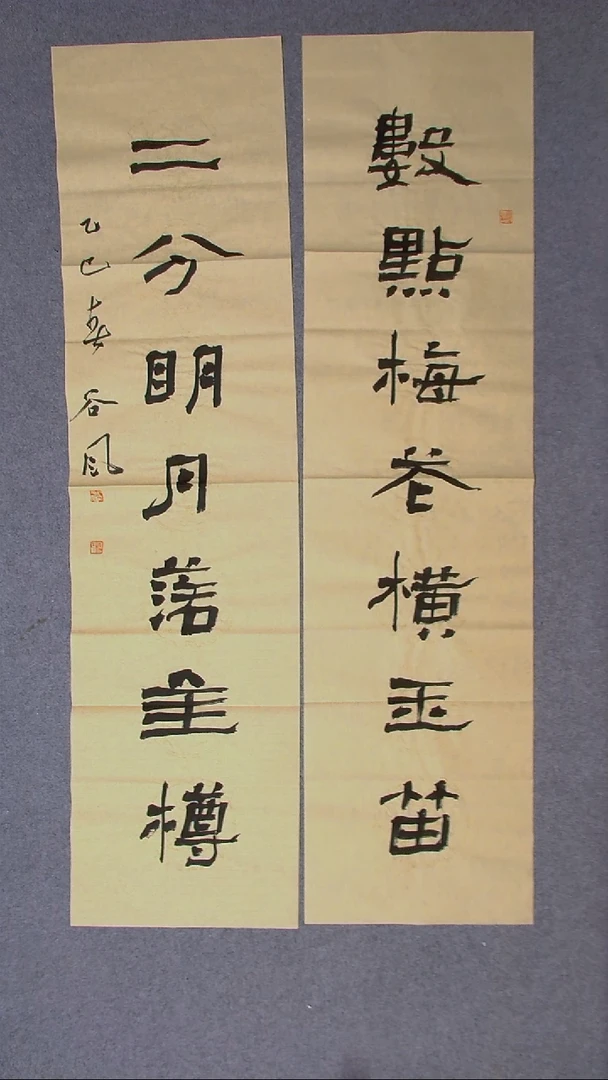 數點梅花橫玉笛
二分明月落金樽
乙巳春 谷風